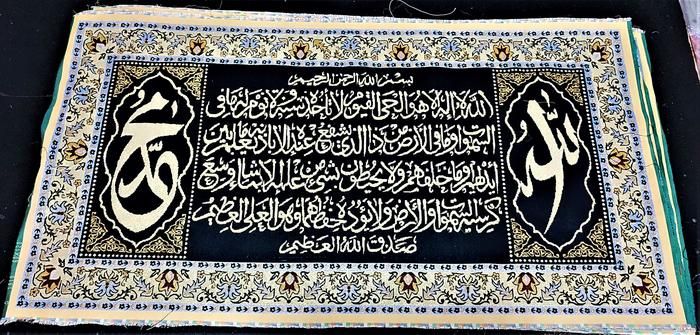 الله
بسم الله الرحمن الرحيم
الله لا إله إلا هو الحي القيوم لا تأخذه سنة ولا نوم له ما في
السموات وما في الأرض من ذا الذي يشفع عنده إلا بإذنه يعلم ما بين
أيديهم وما خلفهم ولا يحيطون بشيء من علمه إلا بما شاء وسع
كرسيه السموات والأرض ولا يؤده حفظهما وهو العلي العظيم
صدق الله العظيم
محمد